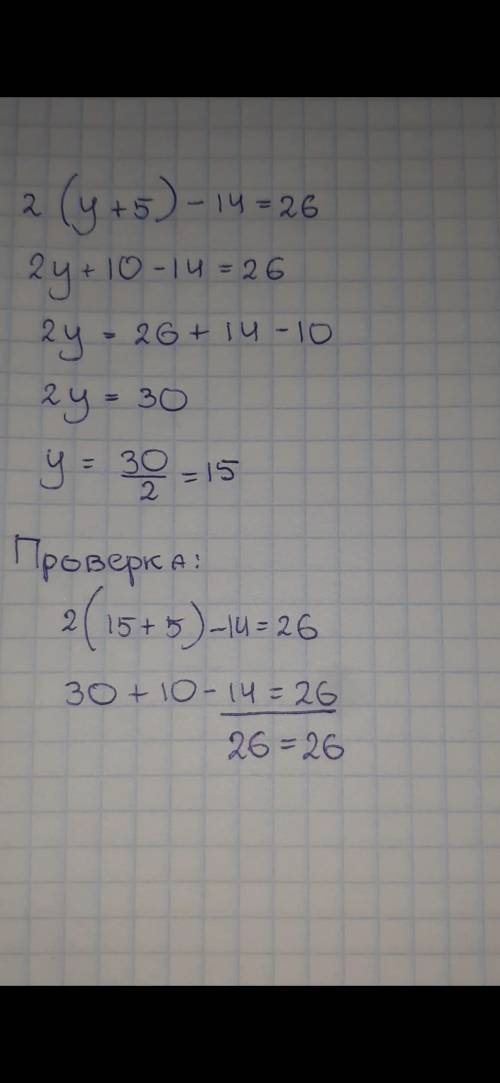 2 (y + 5) - 14 = 26
2y + 10 - 14 = 26
2y = 26 + 14 - 10
2y = 30
y = 30/2 = 15
Проверка:
2 (15 + 5) - 14 = 26
30 + 10 - 14 = 26
26 = 26